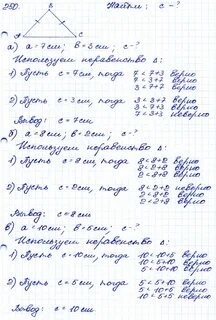 250. Найти: c - ?
B
A C
а) a=7см, b=3см, c-?
Используем неравенство Δ:
1) Пусть c=7см, тогда 7<7+3 верно
7<7+3 верно
3<7+7 верно
2) Пусть c=3см, тогда 3<3+7 верно
3<3+7 верно
7<3+3 неверно
Вывод: c=7см
б) a=8см, b=2см, c-?
Используем неравенство Δ:
1) Пусть c=8см, тогда 8<8+2 верно
8<8+2 верно
2<8+8 верно
2) Пусть c=2см, тогда 8<2+2 неверно
2<8+2 верно
2<8+2 верно
Вывод: c=8см
в) a=10см, b=5см, c-?
Используем неравенство Δ:
1) Пусть c=10см, тогда 10<10+5 верно
10<5+10 верно
5<10+10 верно
2) Пусть c=5см, тогда 5<5+10 верно
5<10+5 верно
10<5+5 неверно
Вывод: c=10см